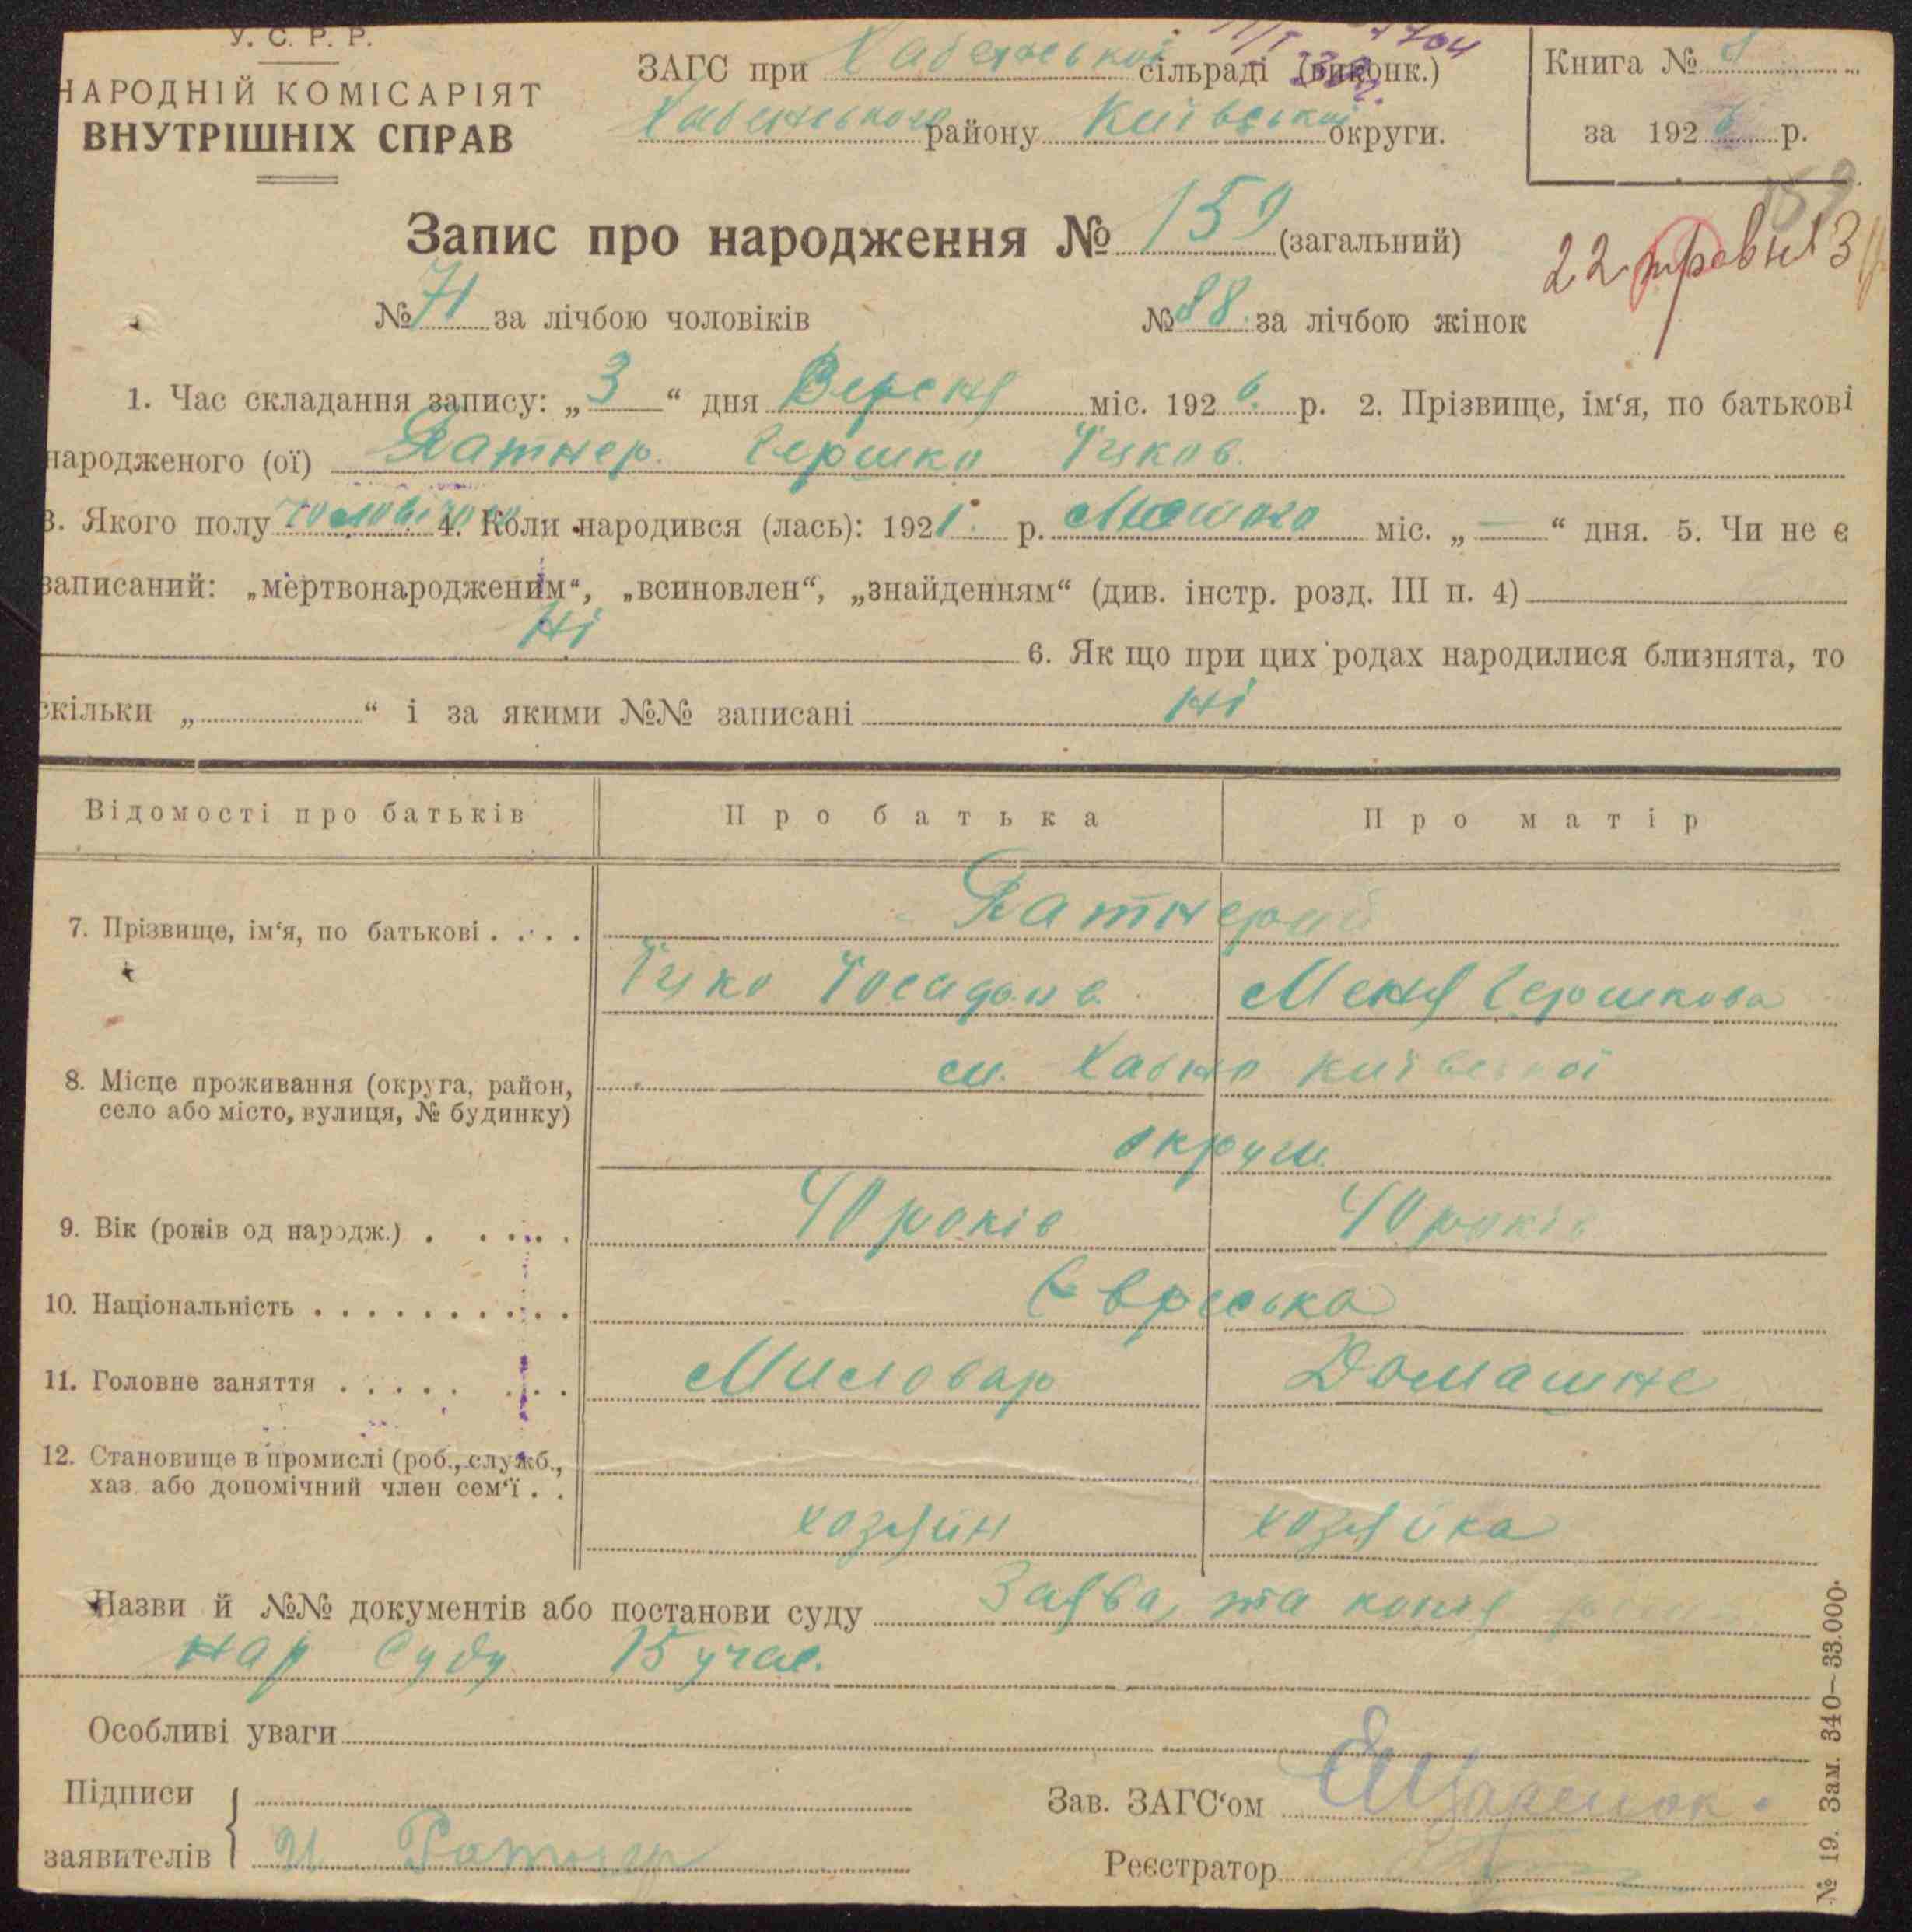 У. С. Р. Р.
НАРОДНІЙ КОМІСАРІЯТ
ВНУТРІШНІХ СПРАВ
ЗАГС при Хабенській сільраді (виконк.)
Хабенського району Київської округи.
Книга №
за 1926 р.
159
Запис про народження № 159 (загальний)
22 травня 3
№ 71 за лічбою чоловіків № 88 за лічбою жінок
1. Час складання запису: „3“ дня Вересня міс. 1926 р. 2. Прізвище, ім‘я, по батькові
народженого (ої) Ратнер Гершко Іцков.
3. Якого полу чоловічого 4. Коли народився (лась): 1921 р. міс. „—“ дня. 5. Чи не є
записаний: „мертвонародженим“, „всиновлен“, „знайденням“ (див. інстр. розд. III п. 4)
Ні
6. Як що при цих родах народилися близнята, то
скільки „ “ і за якими №№ записані Ні
Відомості про батьків Про батька Про матір
7. Прізвище, ім‘я, по батькові . . . . Ратнер
Іцко Меня Гершкова
8. Місце проживання (округа, район,
село або місто, вулиця, № будинку)
м. Хабно Київської
округи
9. Вік (років од народж.) . . . . . . 40 років 40 років
10. Національність . . . . . . . . . . Єврейська
11. Головне заняття . . . . . . . . Миловар Домашне
12. Становище в промислі (роб., служб.,
хаз. або допомічний член сем‘ї . .
хозяйн хозяйка
Назви й №№ документів або постанови суду Заява, та копія
Нар Суду 15 учас.
Особливі уваги
Підписи
заявителів И Ратнер
Зав. ЗАГС‘ом
Реєстратор
№ 19. Зам. 340–33.000.